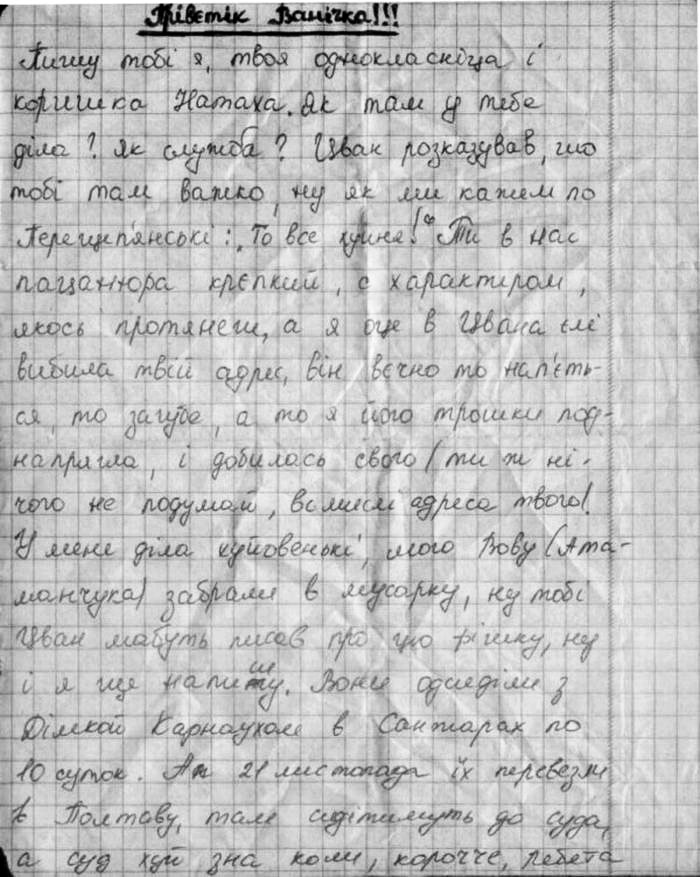 Прівєтік Ванічка!!!
Пишу тобі я, твоя однокласніца і
коришка Натаха. Як там у тебе
діла? Як служба? Цван розказував, шо
тобі там важко, ну як ми кажем по
Перещепянські: "То все хуйня!" Ти в нас
пацанюра крєпкий, с характіром,
якось протянеш, а я оце в Цвана єлі
вибила твій адрес, він вєчно то нап'єть-
ся, то загубе, а то я його трошки под-
напрягла, і добилась свого (ти ж ні-
чого не подумай, в смислі адреса твого).
У мене діла хуйовенькі, мого Вову (Ата-
манчука) забрали в мусарку, ну тобі
Цван мабуть писав про цю фішку, ну
і я ще напишу. Вони одсиділи з
Дімкой Карнаухом в Санжарах по
10 суток. А 21 листопада їх перевезли
в Полтаву, там сидітимуть до суда,
а суд хуй зна коли, корочче, ребята